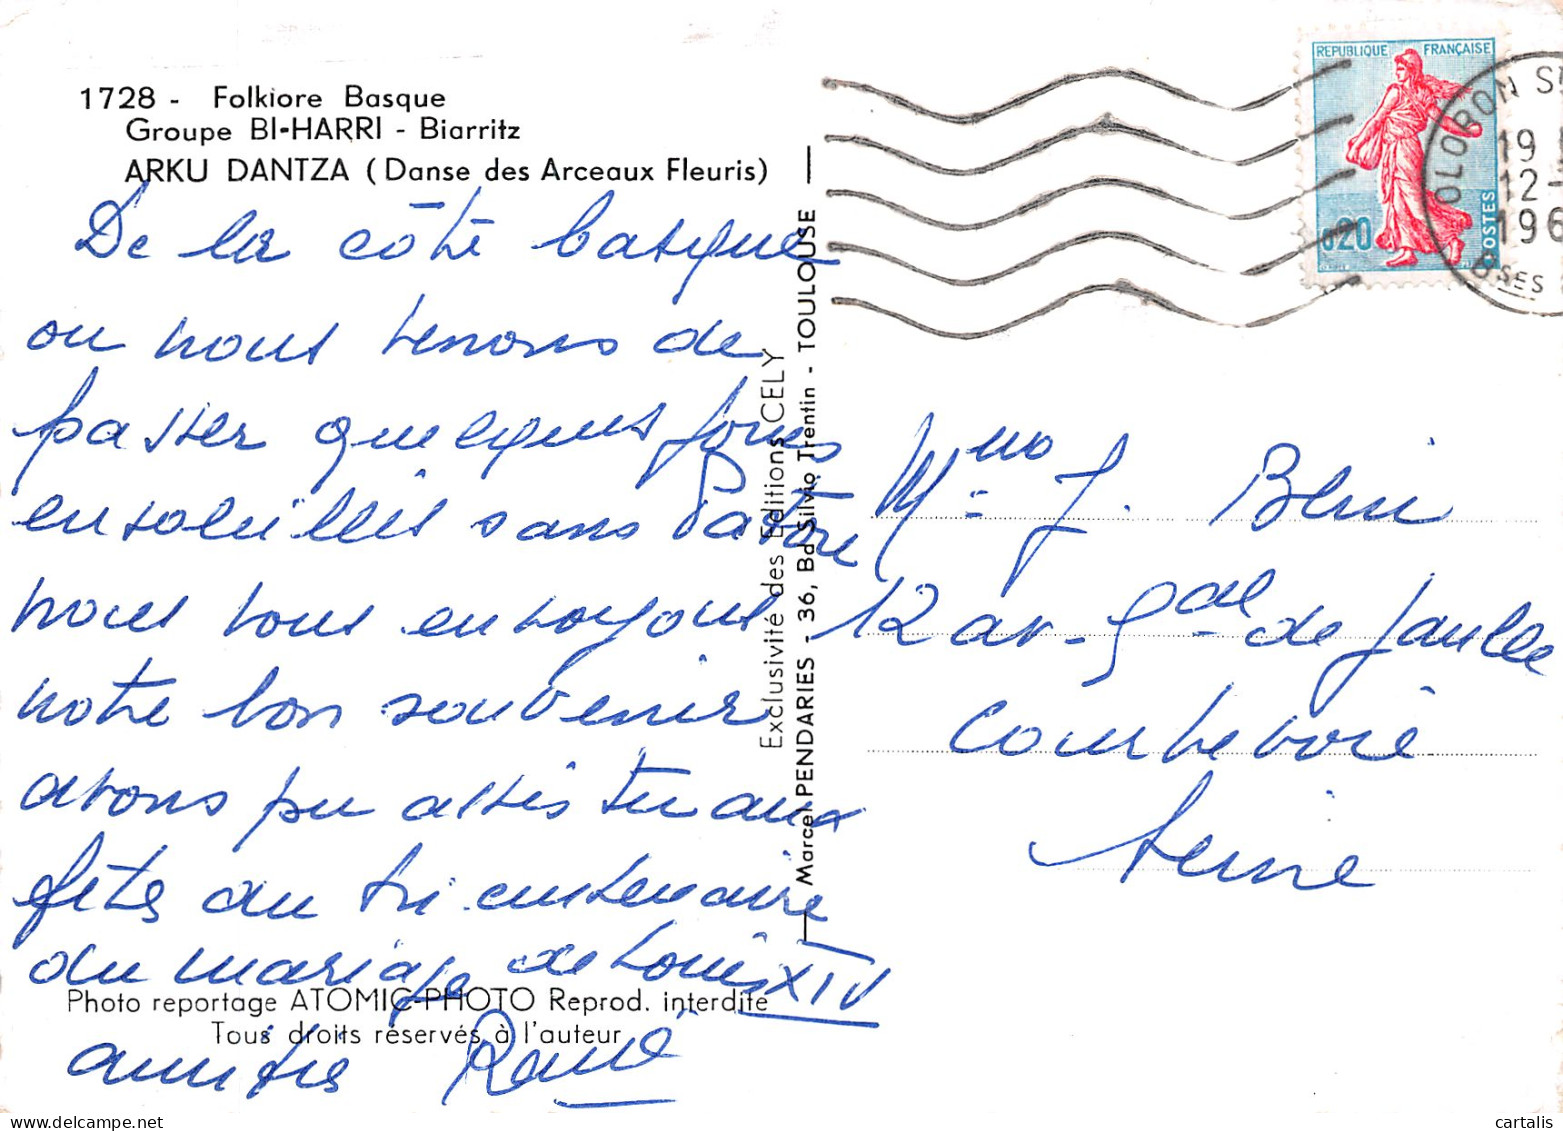 1728 - Folklore Basque
Groupe BI-HARRI - Biarritz
ARKU DANTZA (Danse des Arceaux Fleuris)
De la côte basque
ou nous venons de
passer quelques jours
ensoleillés sans
nous vous envoyons
notre bon souvenir
avons pu assister aux
fêtes du tri-centenaire
du mariage de Louis XIV
amitiés René
Photo reportage ATOMIC-PHOTO Reprod. interdite
Tous droits réservés à l'auteur
Exclusivité des Editions CELY
Marcel PENDARIES - 36, Bd Silvio Trentin - TOULOUSE
REPUBLIQUE FRANÇAISE
0,20
POSTES
OLORON S
19
12 -
196
Bses
Mme J.
12 av. Gal de Gaulle
Courbevoie
Seine
cartalis